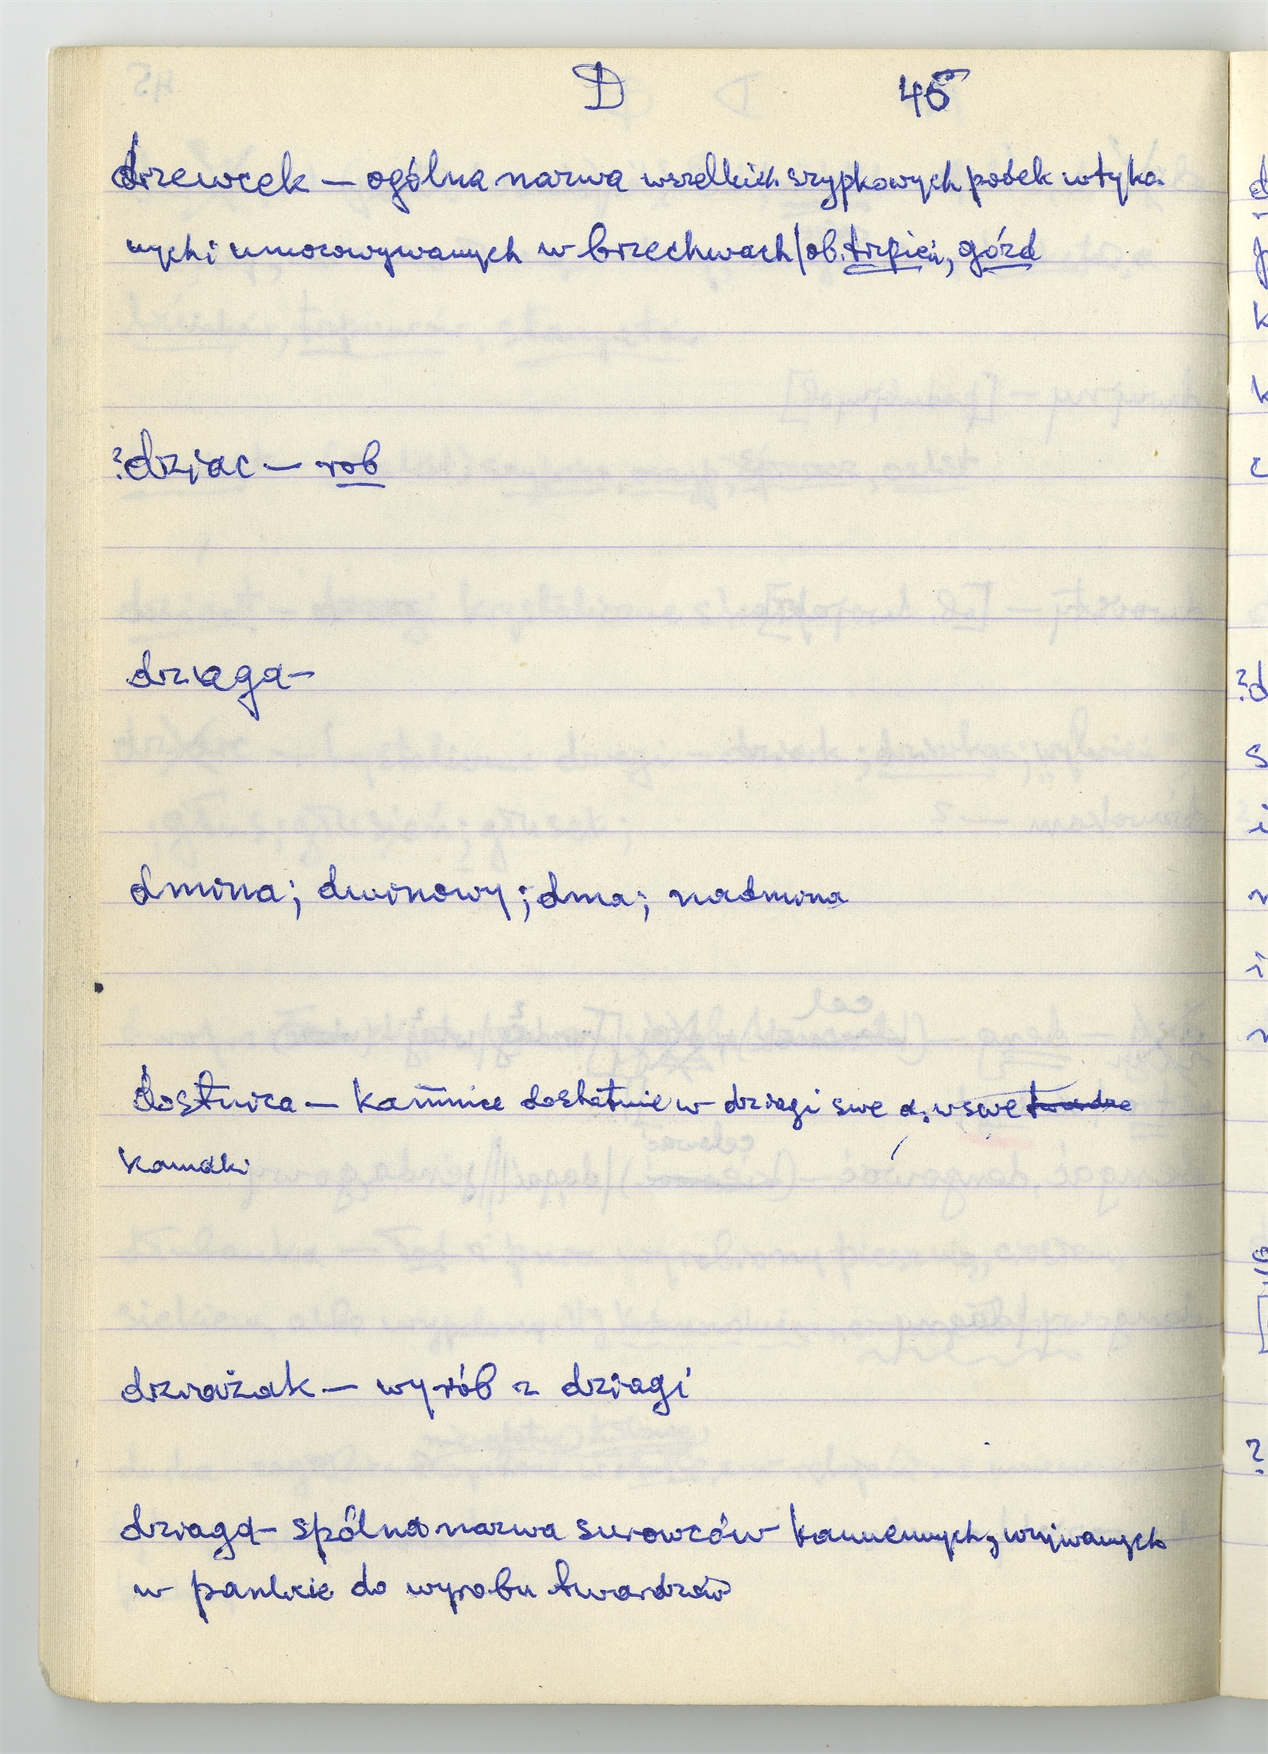 D 45
drzewcek – ogólna nazwa wszelkich szypkowych posek wtyka
nych i umocowywanych w brzechwach /ob. trzpień, górd
?dziac – rob
dziaga –
dmina; dwinowy; dma; nadmina
dostnica – kamnice dostatnie w dziagi swe a. w swe twardze
kamaki
dzważak – wyrób z dziagi
dziaga – spólna nazwa surowców kamiennych, używanych
w paśbie do wyrobu twardzów